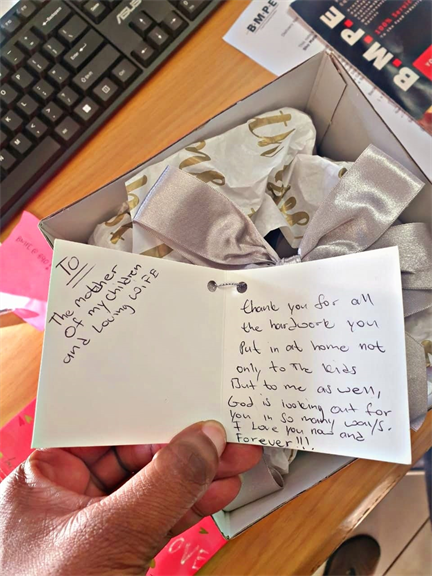 ASUS
B.M.P.E
B.M.P.E.
TO
The mother
Of my children
and Loving WIFE
thank you for all
the hardwork you
Put in at home not
only to The Kids
But to me as well,
God is looking out for
you in so many ways.
I Love you now and
Forever!!!